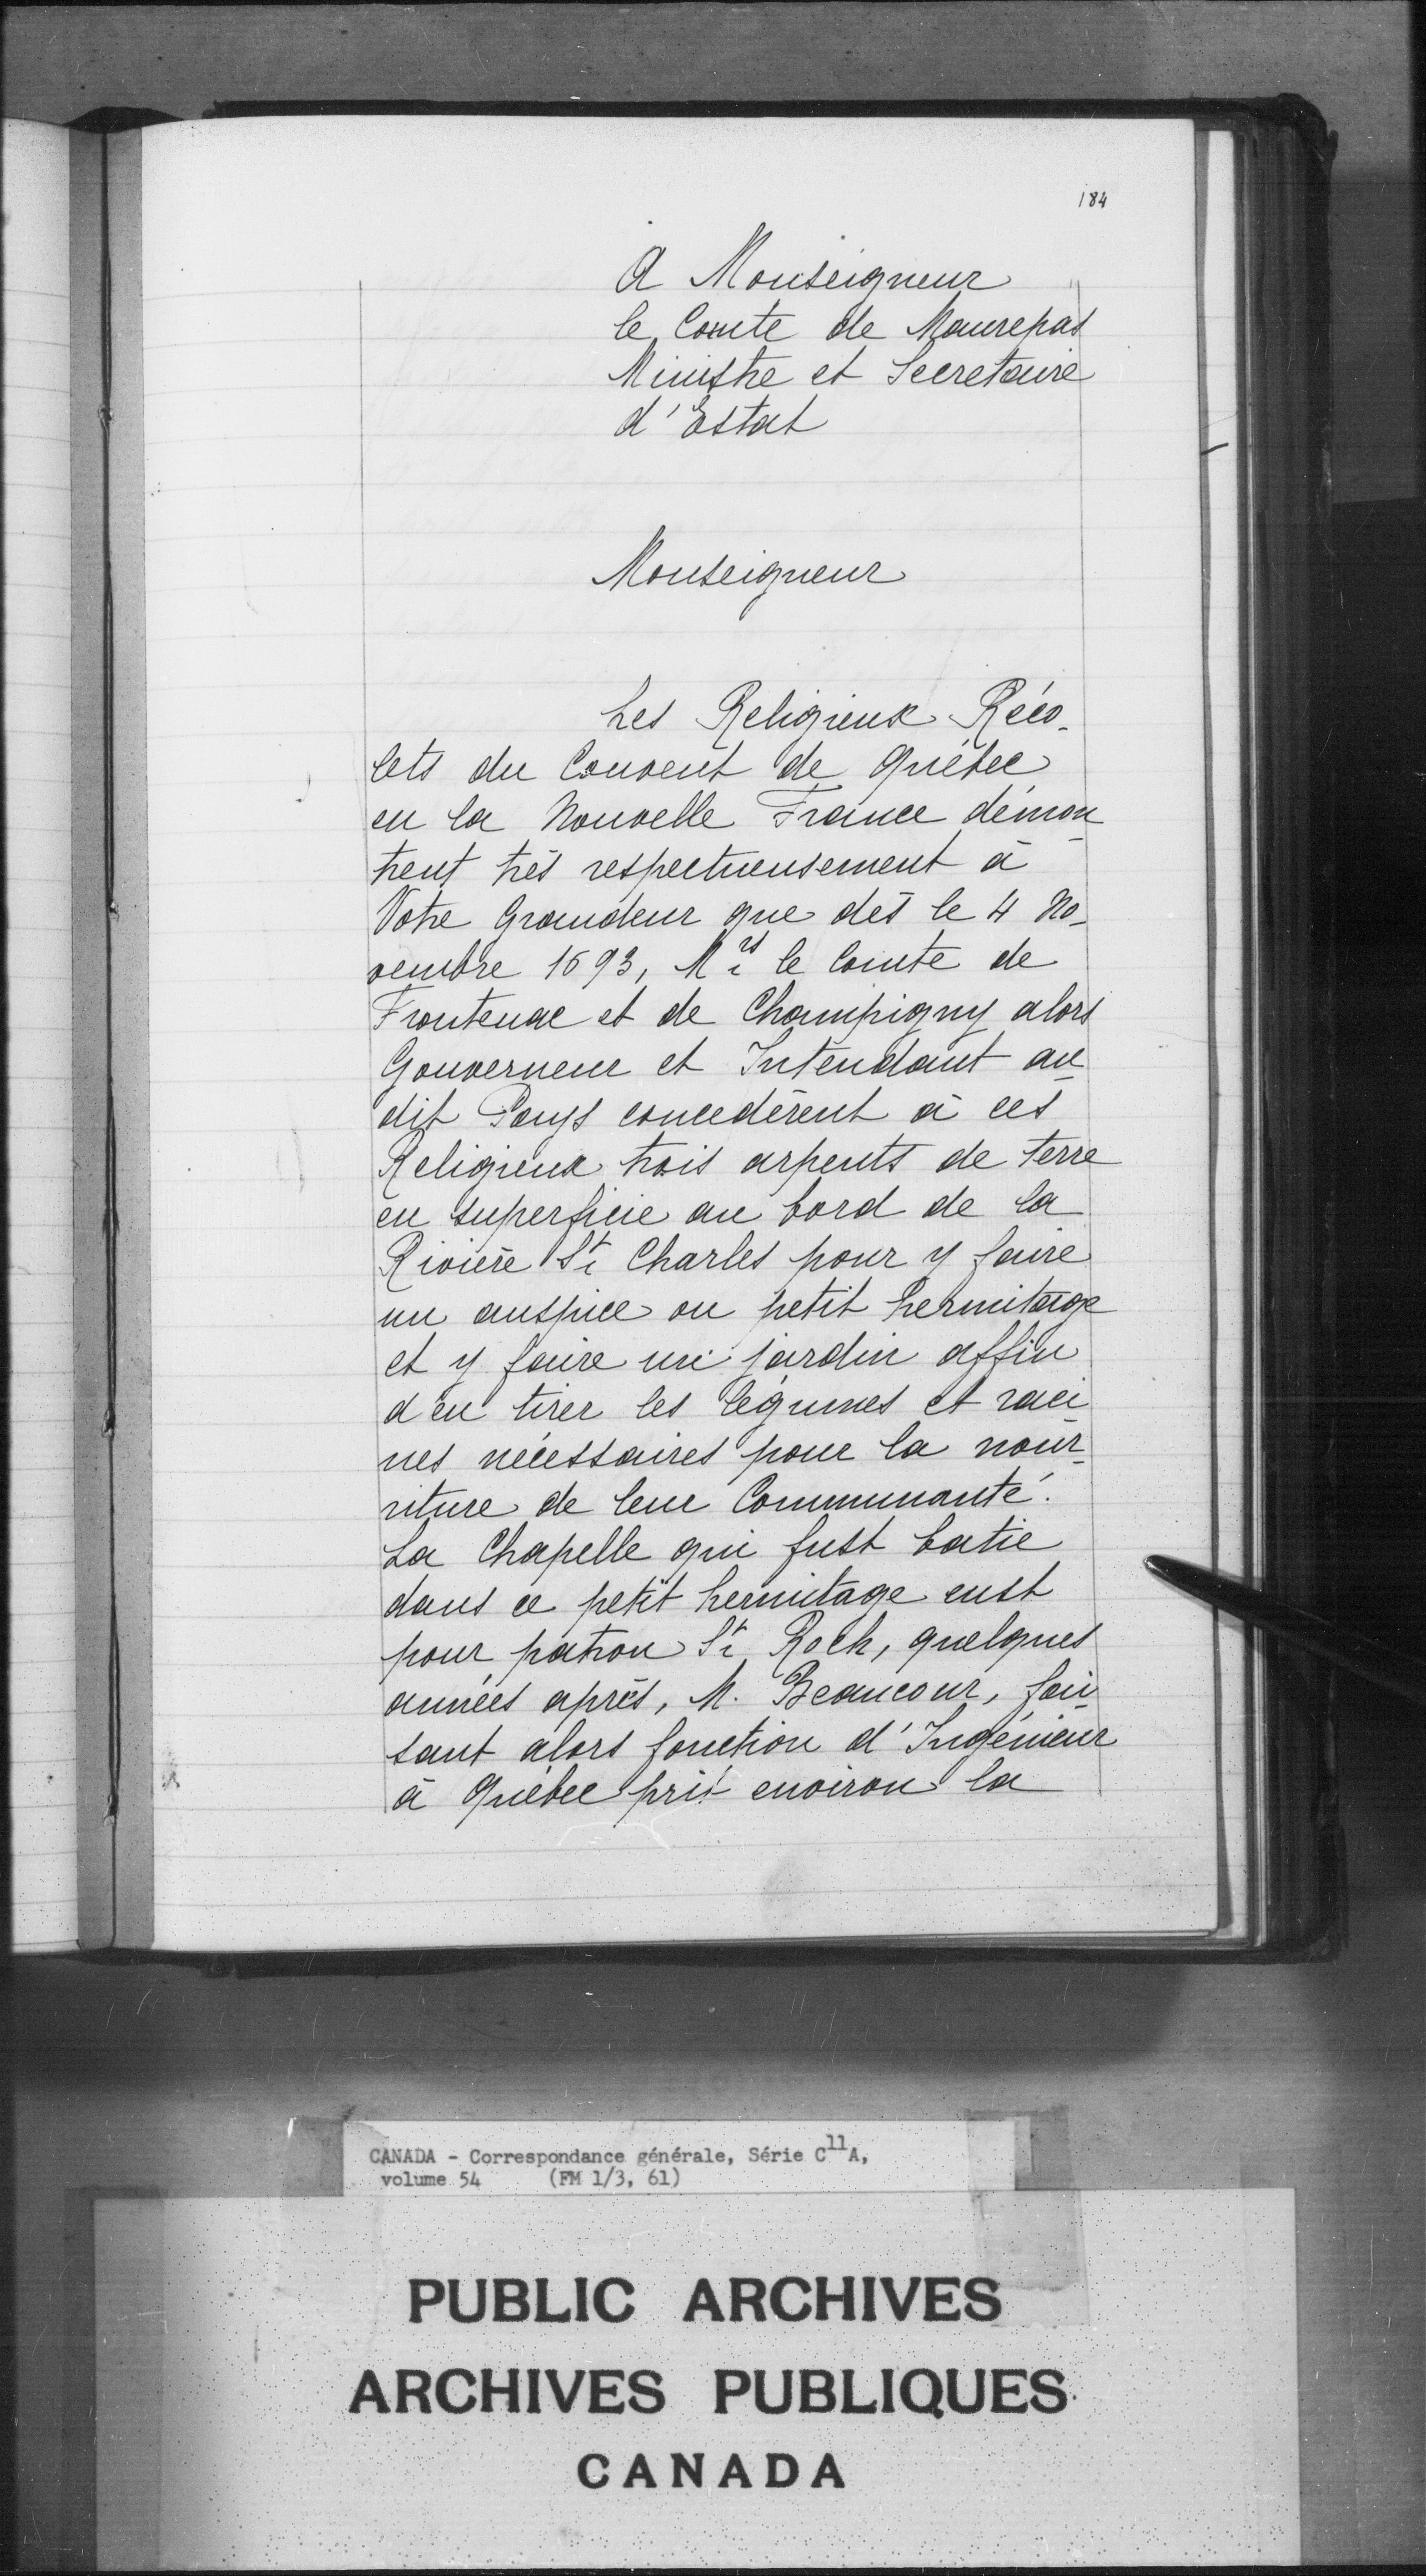 184
A Monseigneur
le Comte de Maurepas
Ministre et Secretaire
d'Estat
Monseigneur
Les Religieux Réco-
lets du Couvent de Québec
en la Nouvelle France démon
trent très respectueusement à
Votre Grandeur que dès le 4 No-
vembre 1693, Mrs le Comte de
Frontenac et de Champigny alors
Gouverneur et Intendant au
dit Pays concedèrent à ces
Religieux trois arpents de terre
en superficie au bord de la
Rivière St Charles pour y faire
un auspice ou petit hermitage
et y faire un jardin affin
d'en tirer les légumes et raci
nes nécessaires pour la nour-
riture de leur Communauté.
La Chapelle qui fust batie
dans ce petit hermitage eust
pour patron St Roch, quelques
années après, M. Beaucour, fai
sant alors fonction d'Ingénieur
à Québec prit environ la
CANADA - Correspondance générale, Série C11A,
volume 54 (FM 1/3, 61)
PUBLIC ARCHIVES
ARCHIVES PUBLIQUES
CANADA